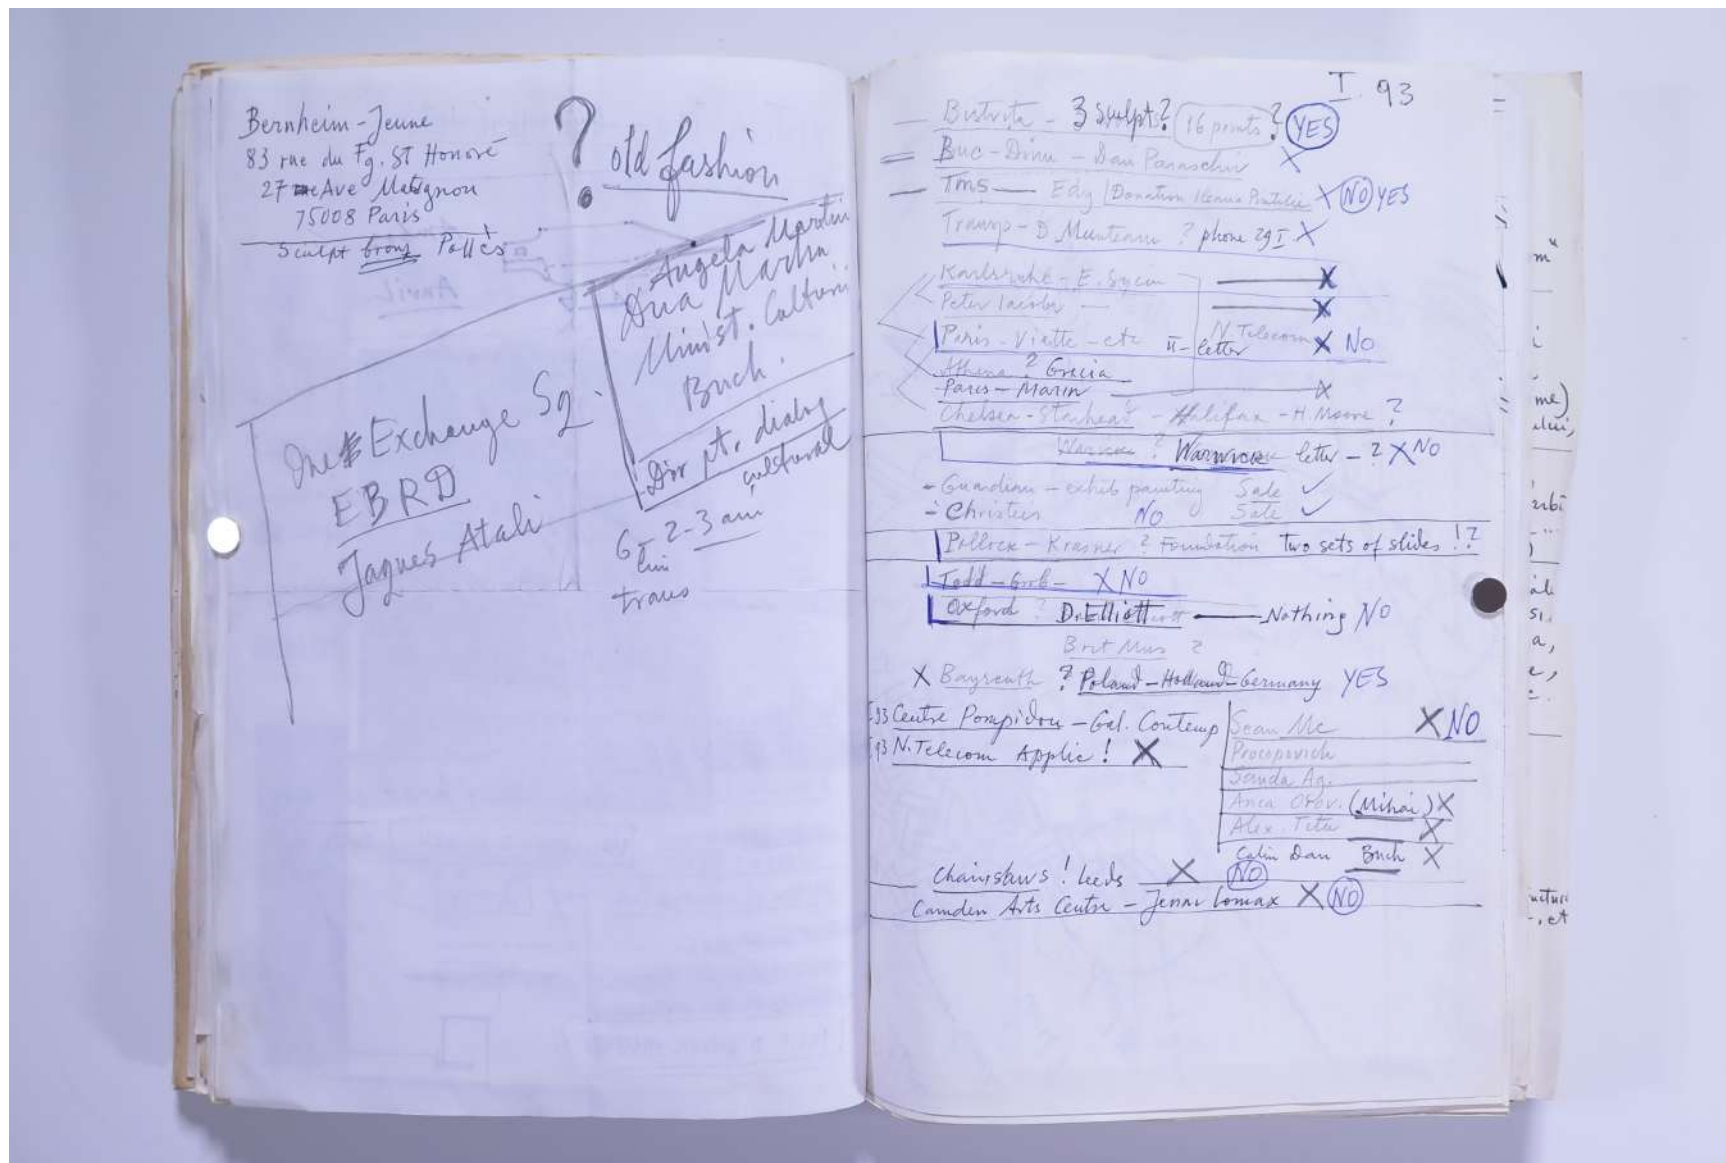 Bernheim-Jeune
83 rue du Fg. St Honoré
27 Ave Matignon
75008 Paris
Sculpt bronz Pallès
? old fashion
Angela Martin
Dna Martin
Minist. Culturii
Buch.
Dir pt. dialog
cultural
6 - 2-3 am
luni
trans
One Exchange Sq.
EBRD
Jaques Atali
I. 93
Bistrița - 3 Sculpts? 16 points? YES
Buc - Dinu - Dan Paraschiv X
Tms — Edy Donation Ileana Pintilie X NO YES
D. Munteanu ? phone 29 I X
Karlsruhe - E. X
Peter Iacobi — X
Paris - Viatte - etc II - letter N. Telecom X NO
Athena ? Grecia
Paris - Marin X
Chelsea - - Halifax - H. Moore ?
Warwick ? Warwick letter - ? X NO
- Guardian - exhib painting Sale ✓
- Christies NO Sale ✓
Pollock - Krasner ? Foundation Two sets of slides !?
Todd - - X NO
Oxford ? D. Elliott — Nothing NO
Brit Mus ?
X Bayreuth ? Poland - Holland - Germany YES
93 Centre Pompidou - Gal. Contemp
93 N. Telecom Applic ! X
Sean Mc X NO
Procopovich
Sanda Ag.
Anca Orov. (Mihai) X
Alex. Titu X
Calin Dan Buch X
Chainsaws ! Leeds X NO
Camden Arts Centre - Jenni Lomax X NO